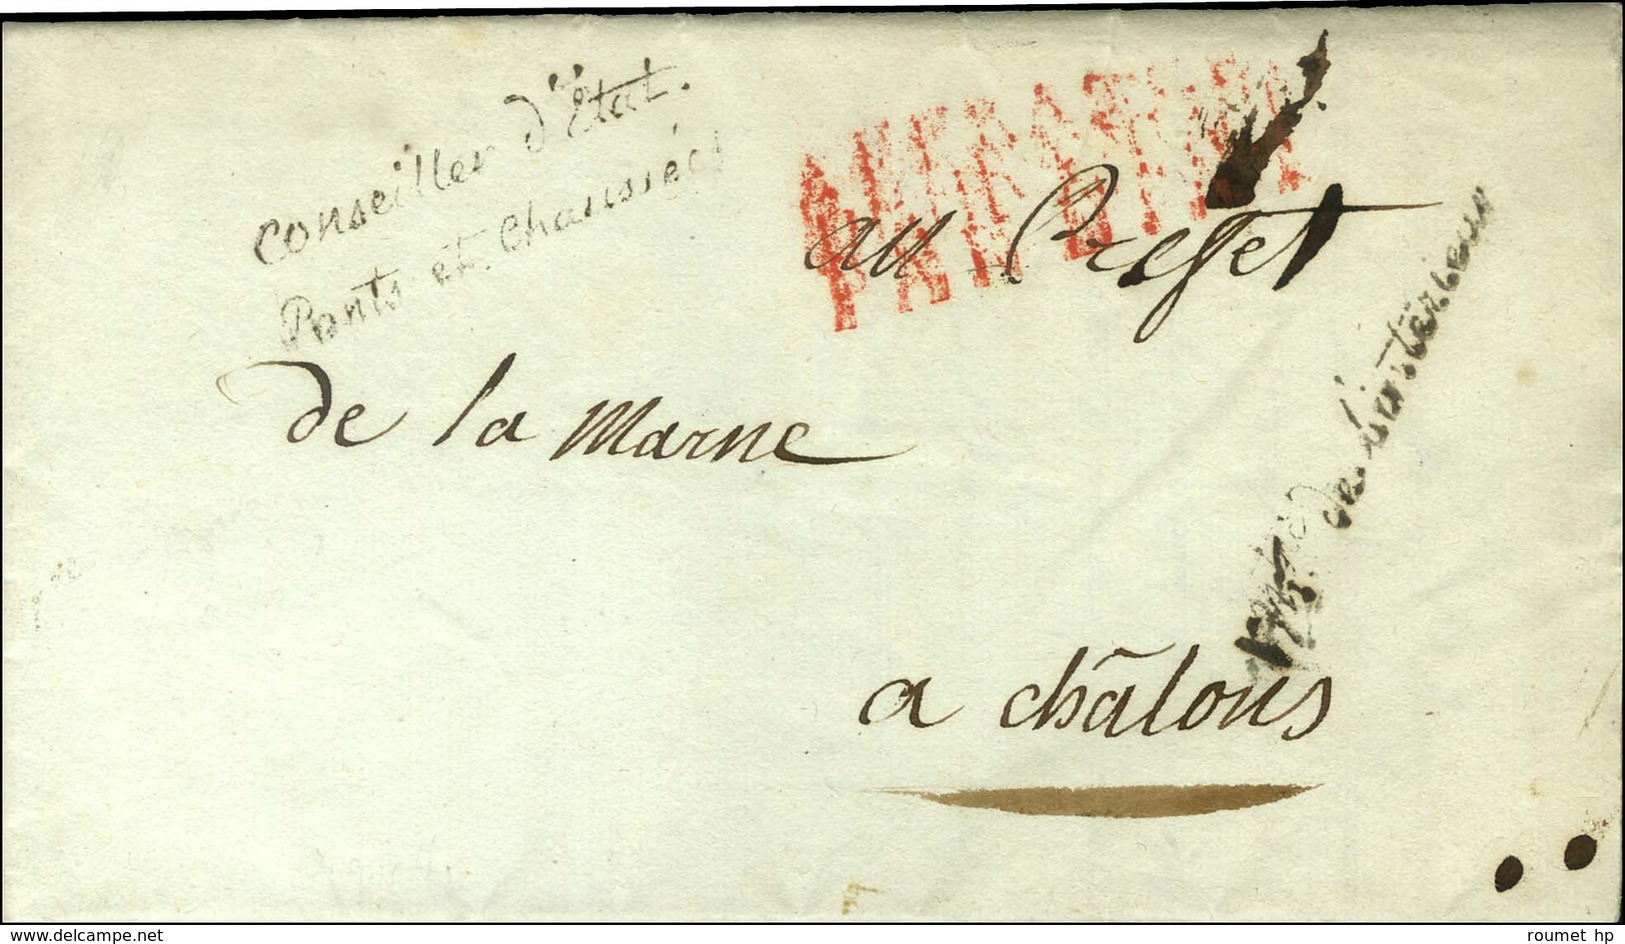 conseiller d'État.
Ponts et Chaussées
au Préfet
de l'intérieur
de la Marne
a châlons
www.delcampe.net
roumet hp